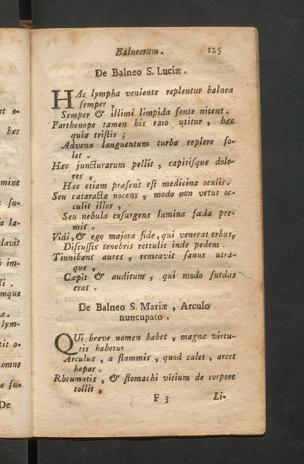 Balneorum. 125
De Balneo S. Luciæ.
HAc lympha veniente replentur balnea
semper,
Semper & illimi limpida fonte nitent.
Parthenope tamen his raro utitur, hæc
quia tristis;
Advena languentum turba replere so-
let.
Hæc juncturarum pellit, capitisque dolo-
res,
Hæc etiam præsens est medicina oculis.
Seu cataracta nocens, modo non vetus oc-
culit illos,
Seu nebula exsurgens lumina fœda pre-
mis.
Vidi, & ego majora fide, qui venerat orbus,
Discussis tenebris rettulit inde pedem.
Tinnibant aures, remeavit sanus utra-
que,
Cæpit & auditum, qui modo surdas
erat.
De Balneo S. Mariæ, Arculo
nuncupato.
QUi breve nomen habet, magnæ virtu-
tis habetur
Arculus, a flammis, quod calet, arcet
hepar.
Rheumatis, & stomachi vitium de corpore
tollit,
F 3 Li-